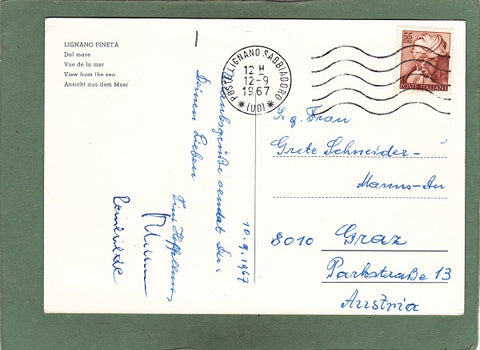 LIGNANO PINETA
Dal mare
Vue de la mer
View from the sea
Ansicht aus dem Meer
POSTE LIGNANO SABBIADORO
12 H
12-9
1967
* (UD) *
55
POSTE ITALIANE
10.9.1967
Urlaubsgrüße sendet
Deinen Lieben
Fam.
Frau
Grete Schneider-
Manns-Au
8010 Graz
Parkstraße 13
Austria